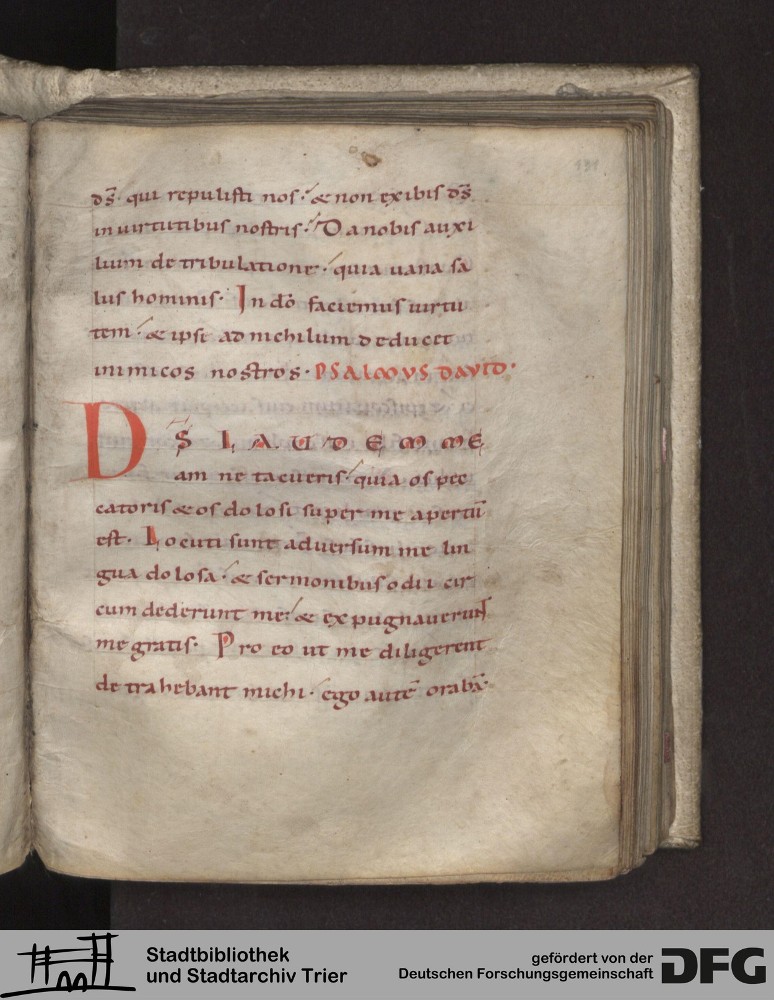 131
dS̄· qui repulisti nos· & non exibis dS̄
in uirtutibus nostris· Da nobis auxi
lium de tribulatione· quia uana sa
lus hominis· In dō faciemus uirtu
tem· & ipse ad nichilum deducet
inimicos nostros· PSALMVS DAVID·
DS̄ LAUDEM ME
am ne tacueris· quia os pec
catoris & os dolosi super me apertū
est· Locuti sunt aduersum me lin
gua dolosa· & sermonibus odii cir
cum dederunt me· & expugnauerunt
me gratis· Pro eo ut me diligerent
detrahebant michi· ego autē orabā·
Stadtbibliothek
und Stadtarchiv Trier
gefördert von der
Deutschen Forschungsgemeinschaft
DFG